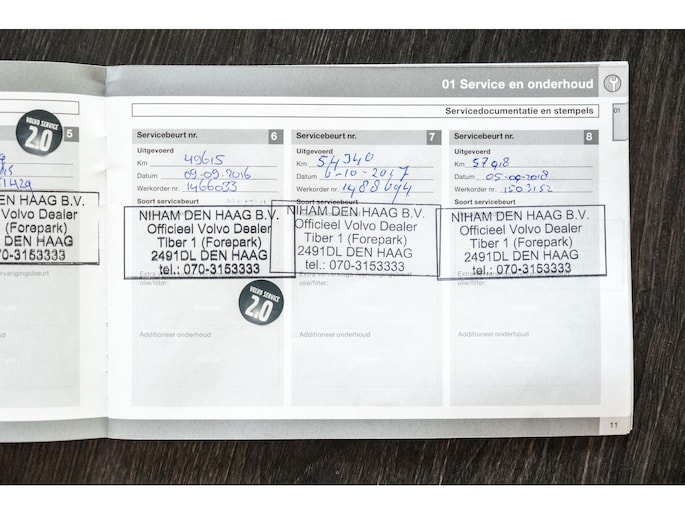 01 Service en onderhoud
01
Servicedocumentatie en stempels
5
VOLVO SERVICE
2.0
NIHAM DEN HAAG B.V.
Officieel Volvo Dealer
Tiber 1 (Forepark)
2491DL DEN HAAG
tel.: 070-3153333
Servicebeurt nr. 6
Uitgevoerd
Km 49615
Datum 09-09-2016
Werkorder nr. 1466033
Soort servicebeurt
NIHAM DEN HAAG B.V.
Officieel Volvo Dealer
Tiber 1 (Forepark)
2491DL DEN HAAG
tel.: 070-3153333
olie/filter:
VOLVO SERVICE
2.0
Additioneel onderhoud
Servicebeurt nr. 7
Uitgevoerd
Km 54340
Datum 6-10-2017
Werkorder nr. 1488694
Soort servicebeurt
NIHAM DEN HAAG B.V.
Officieel Volvo Dealer
Tiber 1 (Forepark)
2491DL DEN HAAG
tel.: 070-3153333
olie/filter:
Additioneel onderhoud
Servicebeurt nr. 8
Uitgevoerd
Km 57918
Datum 05-09-2018
Werkorder nr. 1503152
Soort servicebeurt
NIHAM DEN HAAG B.V.
Officieel Volvo Dealer
Tiber 1 (Forepark)
2491DL DEN HAAG
tel.: 070-3153333
olie/filter:
Additioneel onderhoud
11